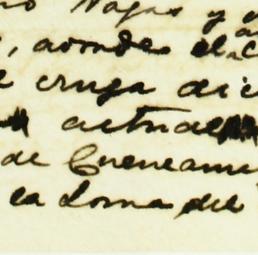 Vegas y
, adonde el
e cruza dic
actual
de Cuencame
la Loma del